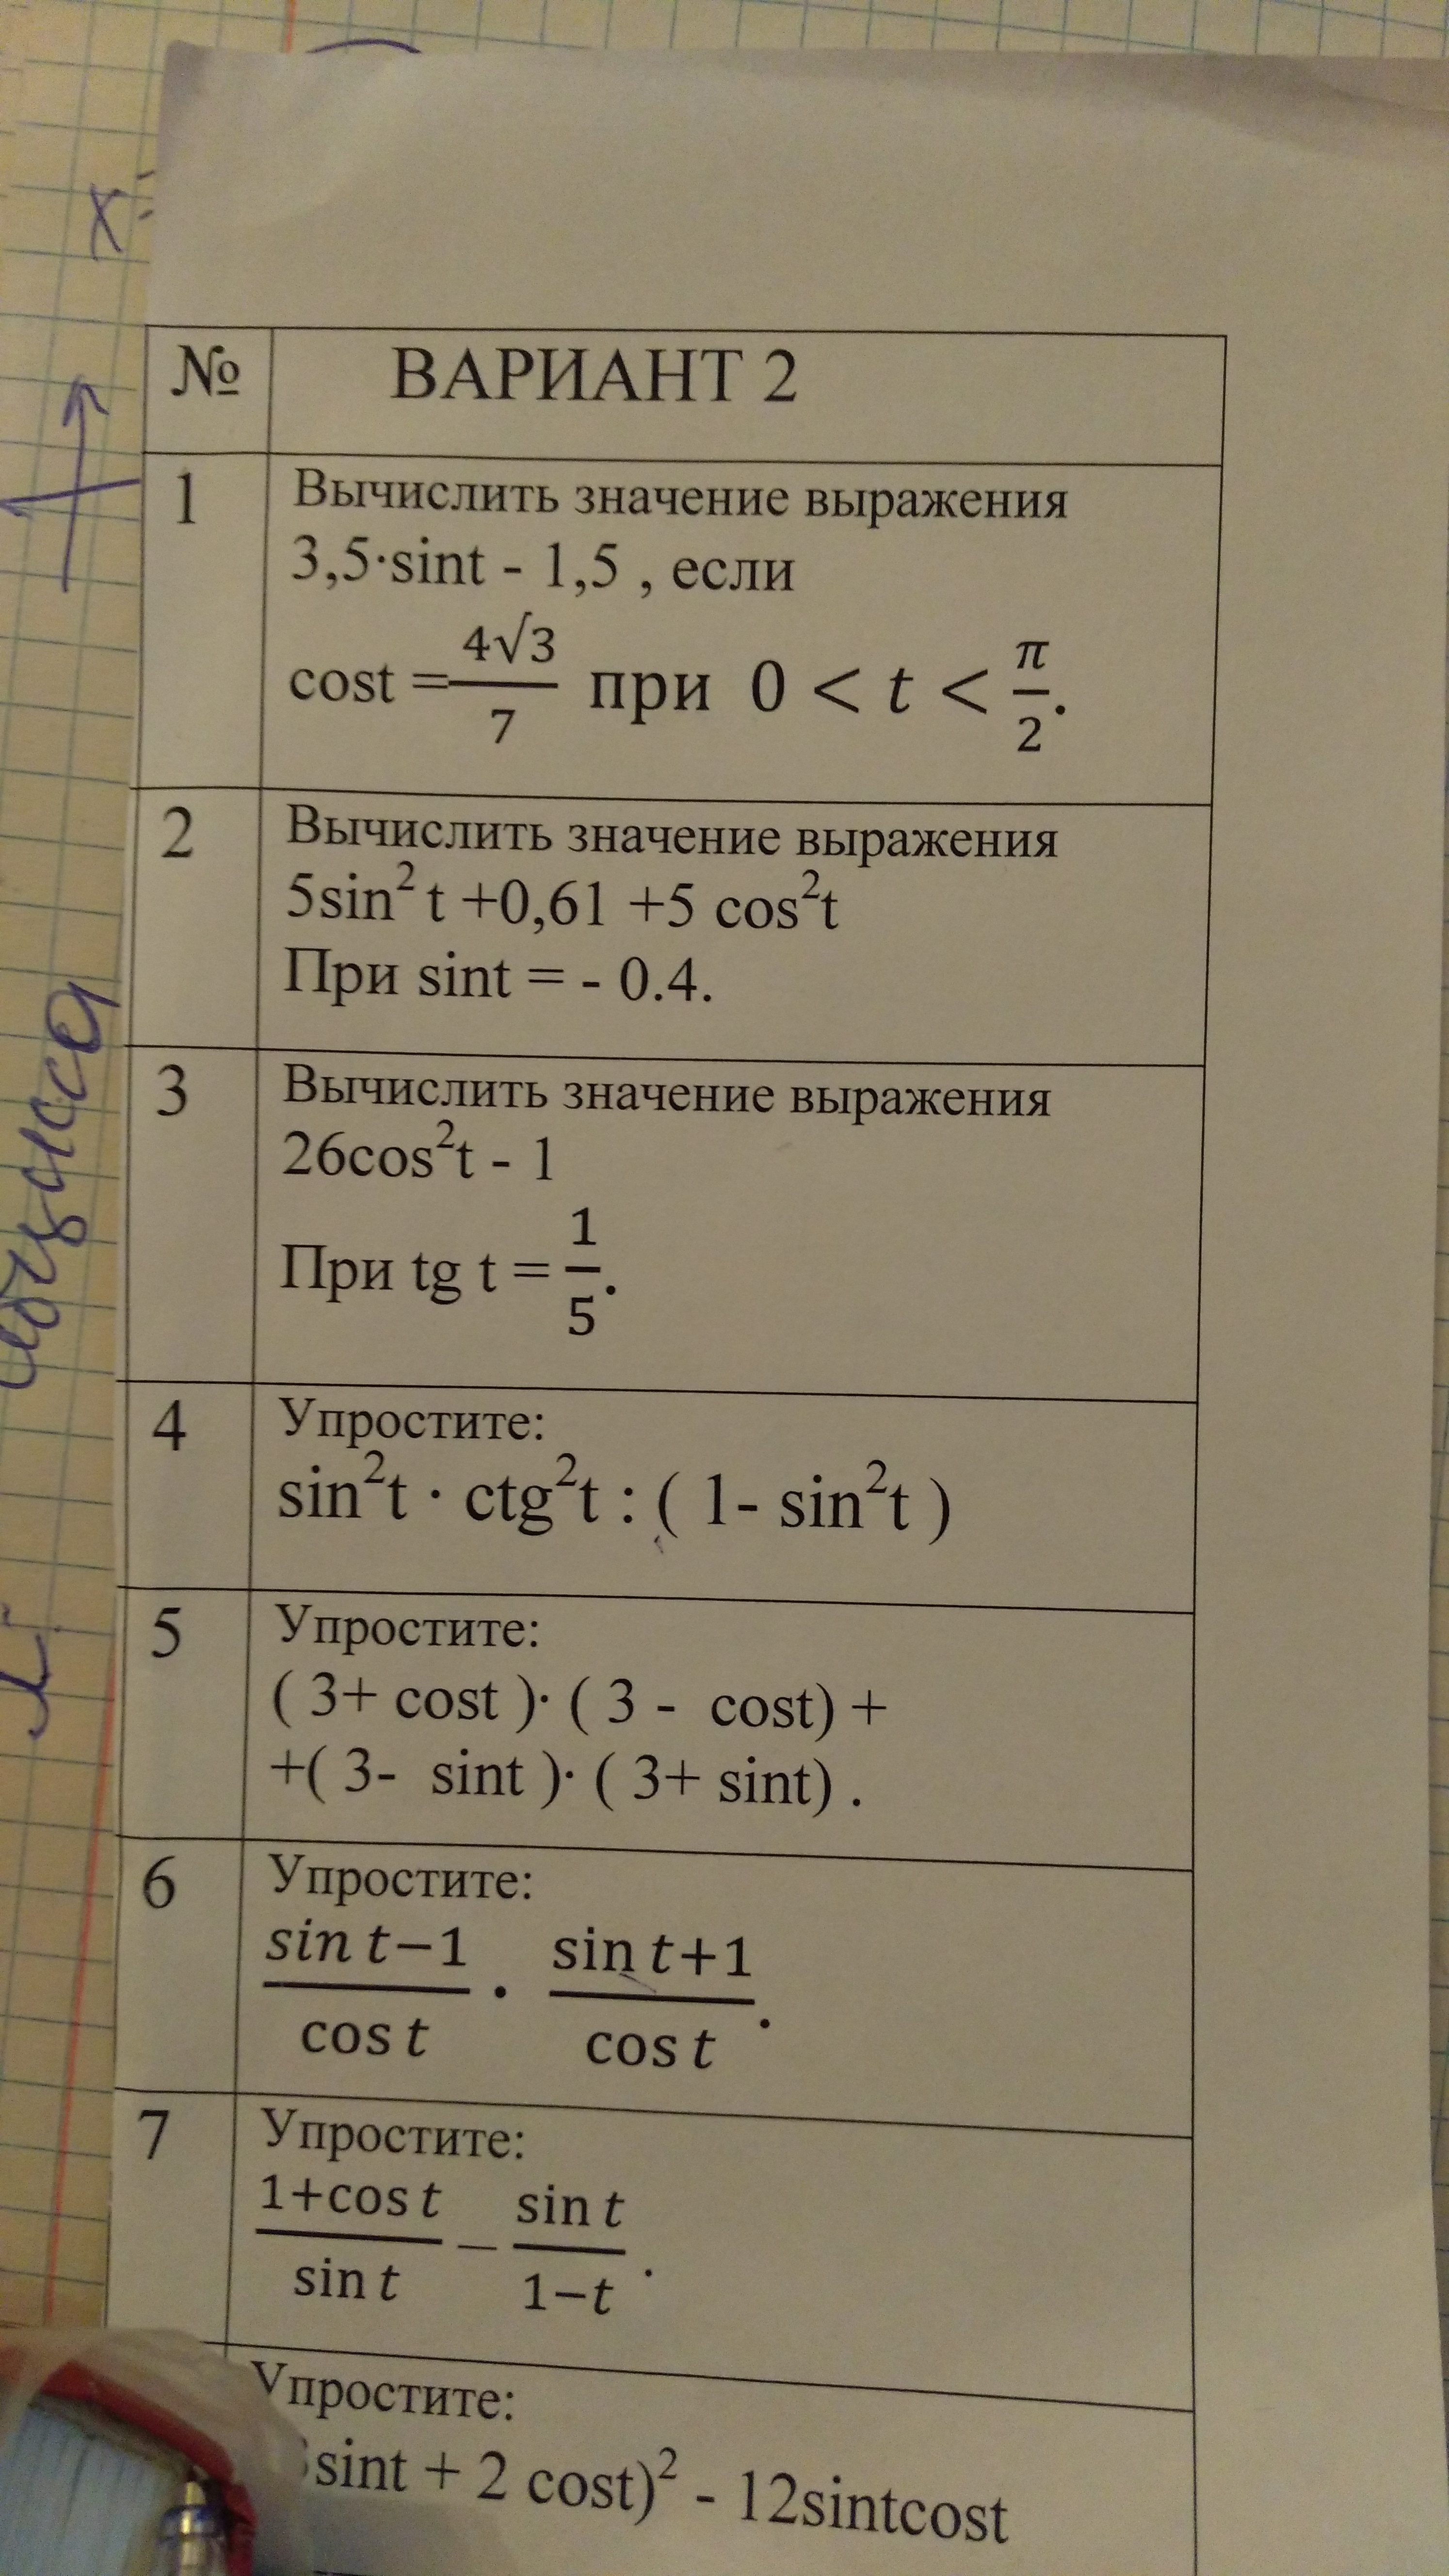 х
№ ВАРИАНТ 2
1 Вычислить значение выражения
3,5·sint - 1,5 , если
cost = 4√3/7 при 0 < t < π/2.
2 Вычислить значение выражения
5sin²t +0,61 +5 cos²t
При sint = - 0.4.
3 Вычислить значение выражения
26cos²t - 1
При tg t = 1/5.
4 Упростите:
sin²t · ctg²t : ( 1- sin²t )
5 Упростите:
( 3+ cost )· ( 3 - cost) +
+( 3- sint )· ( 3+ sint) .
6 Упростите:
sin t−1/cos t · sin t+1/cos t.
7 Упростите:
1+cos t/sin t − sin t/1−t.
Упростите:
sint + 2 cost)² - 12sintcost